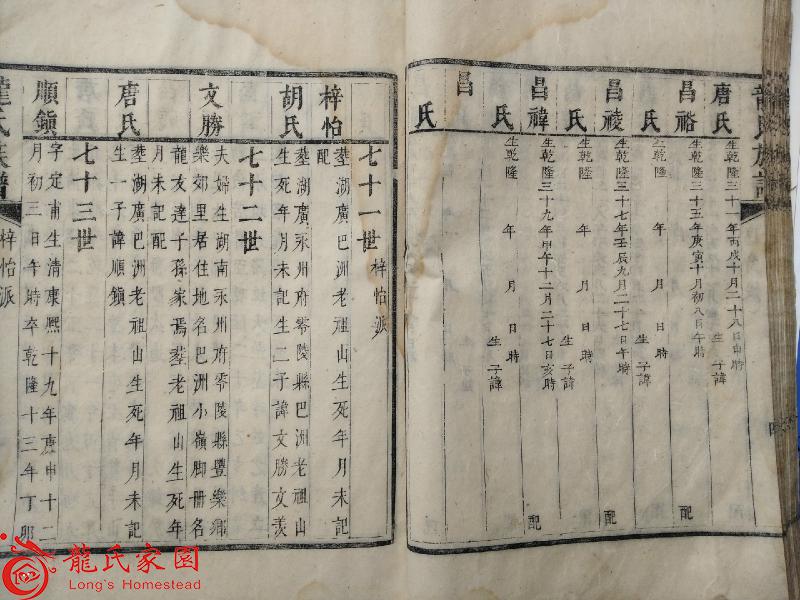 龍氏族譜
唐氏
生乾隆三十一年丙戌十月二十八日申時
生子諱
昌裕
生乾隆三十五年庚寅十月初八日午時
配
氏
生乾隆 年 月 日時
生子諱
昌祾
生乾隆三十七年壬辰九月二十七日午時
配
氏
生乾隆 年 月 日時
生子諱
昌禕
生乾隆三十九年甲午十二月二十七日亥時
配
氏
生乾隆 年 月 日時
生子諱
昌
氏
七十一世 梓怡派
梓怡
葬湖廣巴洲老祖山生死年月未記
配
胡氏
葬湖廣永州府零陵縣巴洲老祖山
生死年月未記生二子諱文勝文羨
七十二世
文勝
夫婦生湖南永州府零陵縣豐樂鄉
樂郊里居住地名巴洲小嶺脚冊名
龍友達子孫家焉葬老祖山生死年
月未記配
唐氏
葬湖廣巴洲老祖山生死年月未記
生一子諱順鎮
七十三世
順鎮
字定甫生清康熙十九年庚申十二
月初三日午時卒乾隆十三年丁卯
龍氏族譜
梓怡派
龍氏家園
Long's Homestead